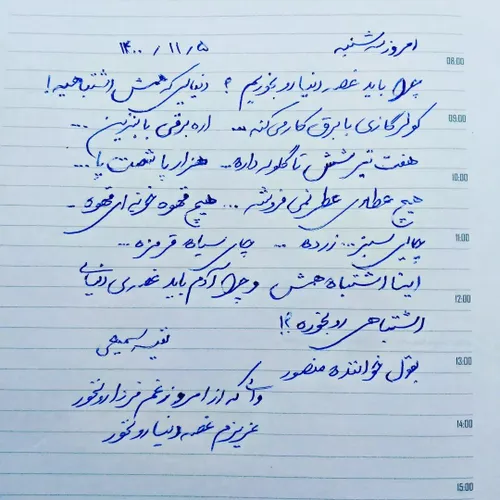 امروز سه‌شنبه ۱۴۰۰/۱۱/۵
08:00
چرا باید غصه دنیا رو بخوریم؟ دنیایی که همش اشتباهیه!
09:00
کولر گازی با برق کار می‌کنه... اره برقی با بنزین...
هفت تیر شش تا گلوله داره... هزار پا شصت پا...
10:00
هیچ عطاری عطر نمی‌فروشه... هیچ قهوه خونه ای قهوه -
چایی سبز... زرده ... چای سیاه قرمزه...
11:00
اینا اشتباه همش و چرا آدم باید غصه‌ی دنیای
12:00
اشتباهی رو بخوره؟!
نفیسه سمیعی
بقول خواننده منصور
13:00
وای که از امروز غم فردا رو نخور
عزیزم غصه دنیا رو نخور
14:00
15:00